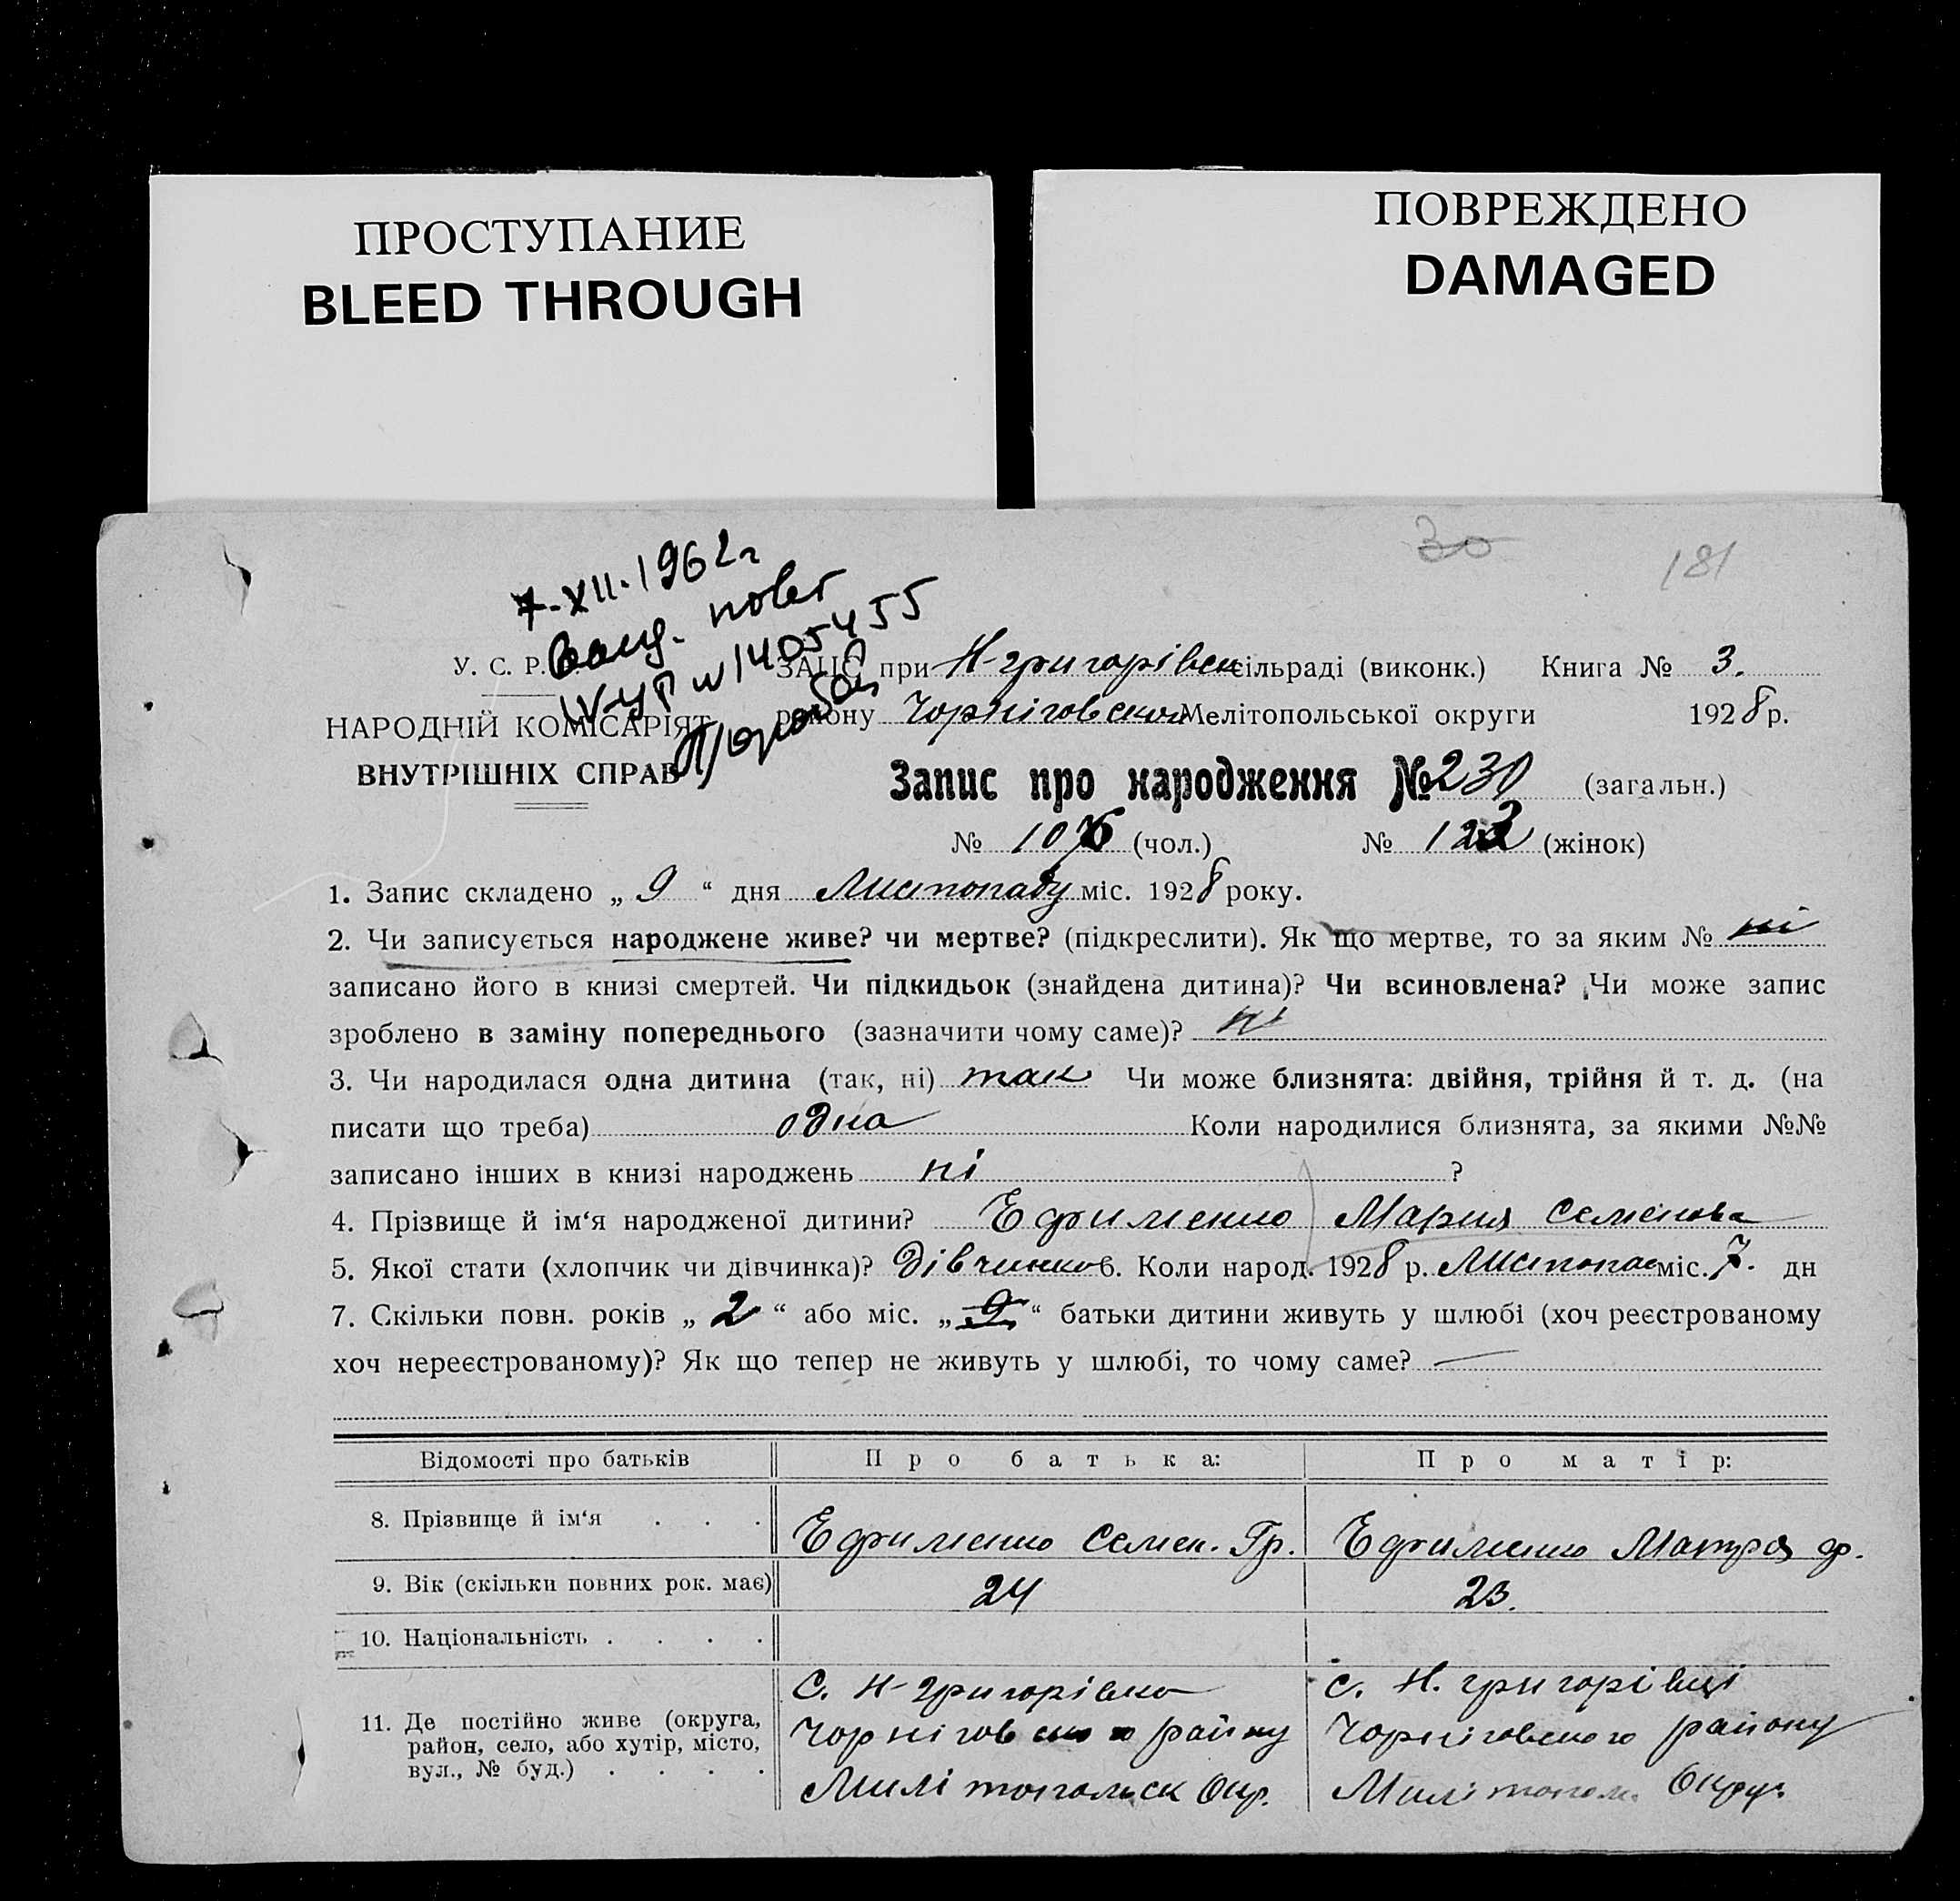 ПРОСТУПАНИЕ
BLEED THROUGH
ПОВРЕЖДЕНО
DAMAGED
30
181
7-XII.1962г
повт
IV-УР № 1405455
У. С. Р. Р.
НАРОДНІЙ КОМІСАРІЯТ
ВНУТРІШНІХ СПРАВ
ЗАЦС при Н-григорівск сільраді (виконк.) Книга № 3.
району Чорніговской Мелітопольської округи 1928 р.
Запис про народження № 230 (загальн.)
№ 106 (чол.) № 123 (жінок)
1. Запис складено „ 9 “ дня Листопаду міс. 1928 року.
2. Чи записується народжене живе? чи мертве? (підкреслити). Як що мертве, то за яким № ні
записано його в книзі смертей. Чи підкидьок (знайдена дитина)? Чи всиновлена? Чи може запис
зроблено в заміну попереднього (зазначити чому саме)? ні
3. Чи народилася одна дитина (так, ні) так Чи може близнята: двійня, трійня й т. д. (на
писати що треба) одна Коли народилися близнята, за якими №№
записано інших в книзі народжень ні ?
4. Прізвище й ім‘я народженої дитини? Ефименко Мария Семенова
5. Якої стати (хлопчик чи дівчинка)? Дівчинка 6. Коли народ. 1928 р. Листопад міс. 7. дн
7. Скільки повн. років „ 2 “ або міс. „ 9 “ батьки дитини живуть у шлюбі (хоч реєстрованому
хоч нереєстрованому)? Як що тепер не живуть у шлюбі, то чому саме? —
Відомості про батьків Про батька: Про матір:
8. Прізвище й ім‘я . . . Ефименко Семен. Гр. Ефименко Мотря ф.
9. Вік (скільки повних рок. має) 24 23.
10. Національність . . . .
11. Де постійно живе (округа,
район, село, або хутір, місто,
вул., № буд.) . . . .
С. Н-григорівка
Чорніговского району
Милітопольск Окр.
с. Н. григорівці
Чорніговского району
Милітопол. Округ.